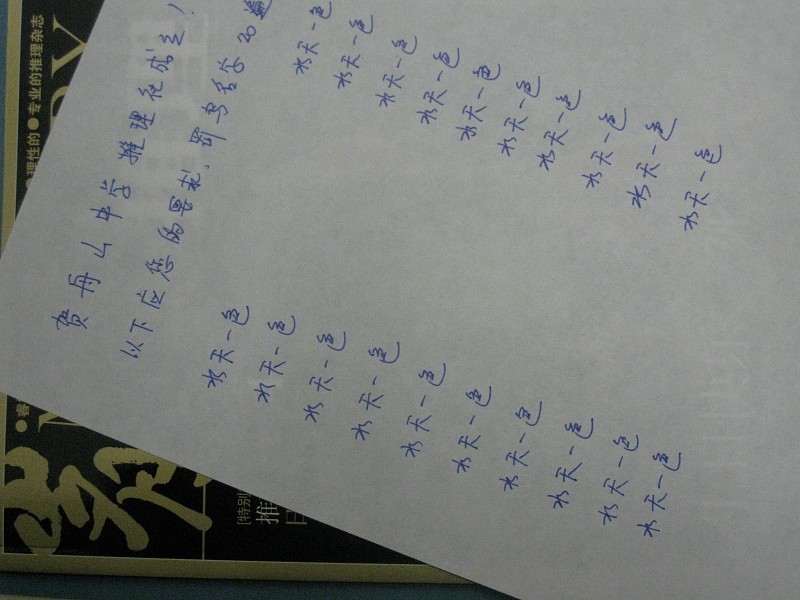 贺舟山中学推理社成立!
以下应您的要求,罚写名字20遍
水天一色 水天一色
水天一色 水天一色
水天一色 水天一色
水天一色 水天一色
水天一色 水天一色
水天一色 水天一色
水天一色 水天一色
水天一色 水天一色
水天一色 水天一色
水天一色 水天一色
理性的●专业的推理杂志
[特别
推